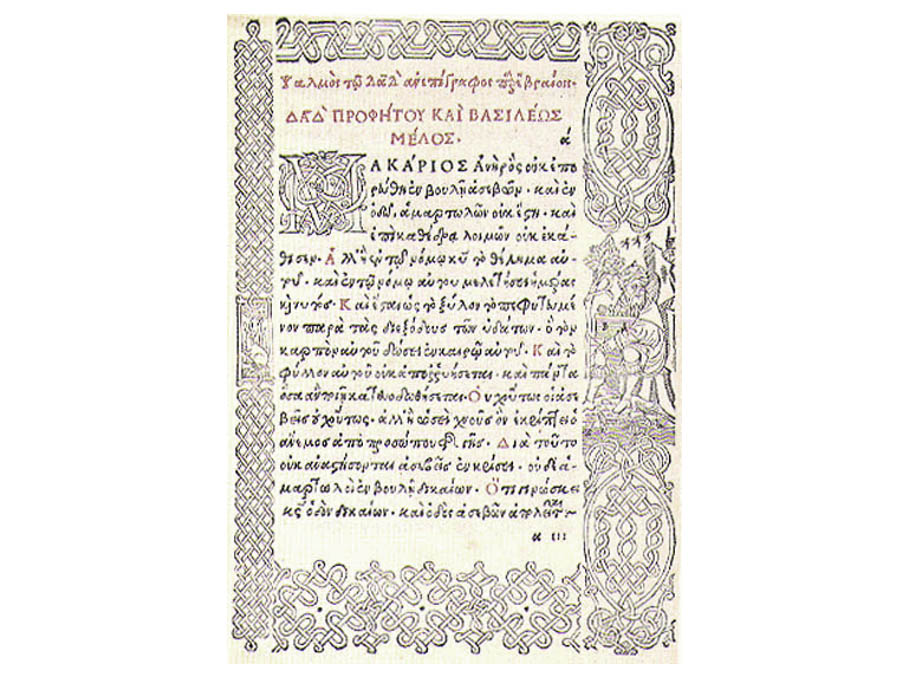 Ψαλμὸς τῷ Δαδ̀ ἀνεπίγραφος παρ' ἑβραίοις.
ΔΑΔ̀ ΠΡΟΦΉΤΟΥ ΚΑῚ ΒΑΣΙΛΈΩΣ
ΜΈΛΟΣ.
ά
ΜΑΚΆΡΙΟΣ Ἀνὴρ ὃς οὐκ ἐπο
ρεύθη ἐν βουλῇ ἀσεβῶν. καὶ ἐν
ὁδῷ, ἁμαρτωλῶν οὐκ ἔστη. καὶ
ἐπὶ καθέδρα λοιμῶν οὐκ ἐκά-
θισεν. Ἀλλ' ἢ ἐν τῷ νόμῳ κυ τὸ θέλημα αυ-
τοῦ. καὶ ἐν τῷ νόμῳ αὐτου μελετήσει ἡμέρας
κὶ νυκτός. Καὶ ἔσται ὡς τὸ ξύλον τὸ πεφυτευμέ
νον παρὰ τὰς διεξόδους τῶν ὑδάτων. ὃ τὸν
καρπὸν αὑτοῦ δώσει ἐν καιρῷ αὑτοῦ. Καὶ τὸ
φύλλον αὐτοῦ οὐκ ἀποῤῥυήσεται. καὶ πάντα
ὅσα ἂν ποιῇ κατευοδωθήσεται. Οὐχ οὕτως οἱ ἀσε
βεῖς οὐχ οὕτως. ἀλλ' ἢ ὡσεὶ χνοῦς ὃν ἐκρίπτει ὁ
ἄνεμος ἀπὸ προσώπου τῆς γῆς. Διὰ τοῦτο
οὐκ ἀναστήσονται ἀσεβεῖς ἐν κρίσει. οὐδὲ ἁ-
μαρτωλοὶ ἐν βουλῇ δικαίων. Ὅτι γινώσκει
κς ὁδὸν δικαίων. καὶ ὁδὸς ἀσεβῶν ἀπολεῖται
α ιιι